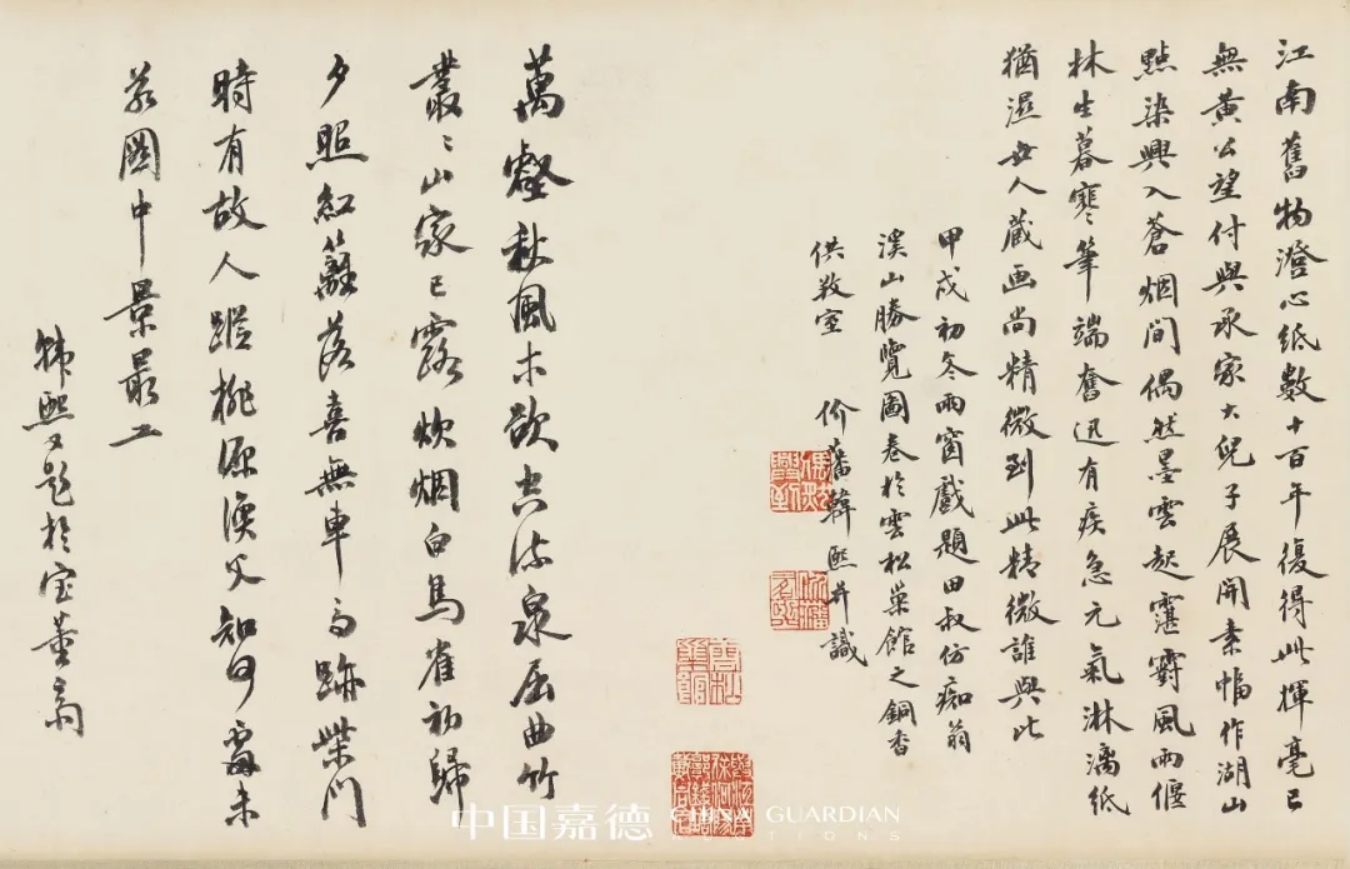 江南舊物澄心紙數十百年復得此揮毫已
無黃公望付與承家大兒子展開素幅作湖山
點染興入蒼烟間偶然墨雲起窪霨風雨偃
林生暮寒筆端奮迅有疾急元氣淋漓紙
猶濕世人藏画尚精微到此精微誰與比
甲戌初冬雨窗戲題田叔仿痴翁
溪山勝覽圖卷於雲松巢館之銅香
供教室 價藩韓熙并識
萬壑秋風木欲空流泉屈曲竹
叢〻山家已露炊烟白鳥雀初歸
夕照紅籬落喜無車馬跡柴門
時有故人蹤桃源漁父知何處未
若圖中景最工
韓熙又題於宝董齋
雲松巢館
中国嘉德 CHINA GUARDIAN
AUCTIONS